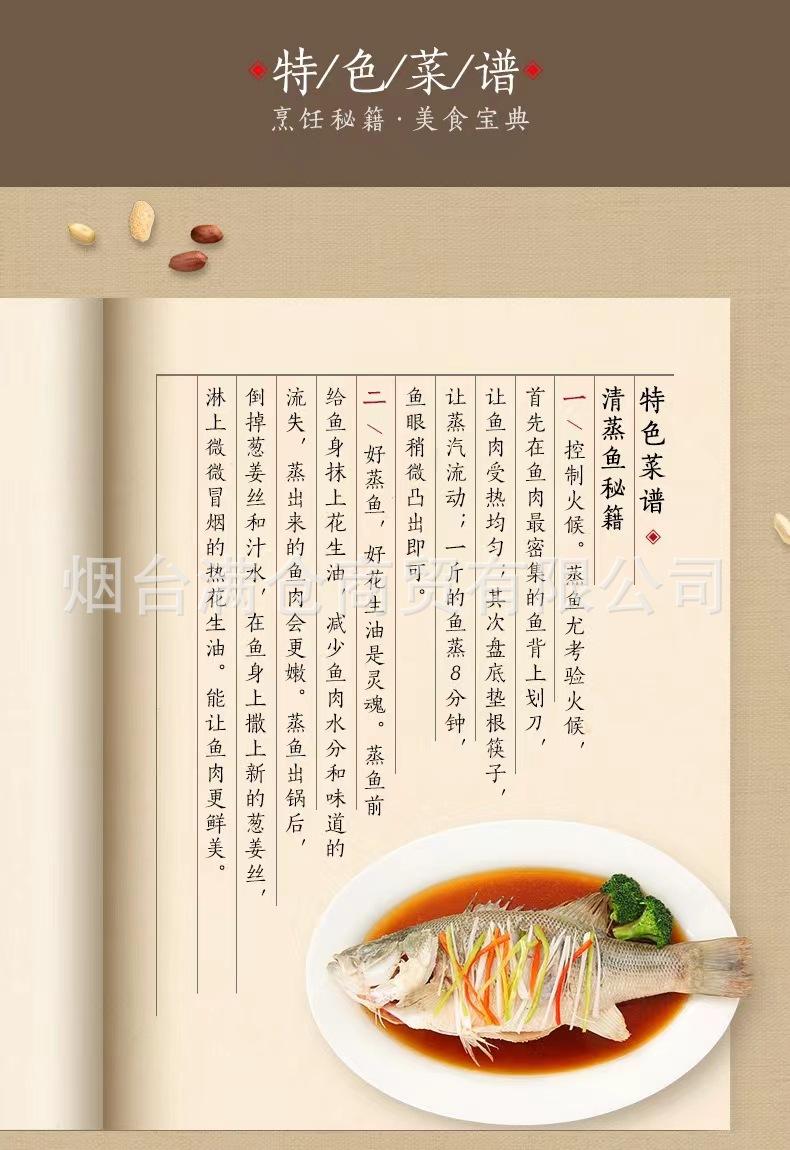 特/色/菜/谱
烹饪秘籍·美食宝典
特色菜谱
清蒸鱼秘籍
一\控制火候。蒸鱼尤考验火候，
首先在鱼肉最密集的鱼背上划刀，
让鱼肉受热均匀，其次盘底垫根筷子，
让蒸汽流动；一斤的鱼蒸8分钟，
鱼眼稍微凸出即可。
二\好蒸鱼，好花生油是灵魂。蒸鱼前
给鱼身抹上花生油，减少鱼肉水分和味道的
流失，蒸出来的鱼肉会更嫩。蒸鱼出锅后，
倒掉葱姜丝和汁水，在鱼身上撒上新的葱姜丝，
淋上微微冒烟的热花生油。能让鱼肉更鲜美。
烟台满仓商贸有限公司